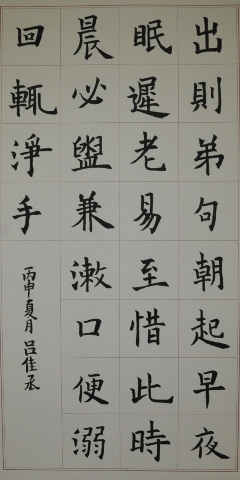 出則弟句朝起早夜
眠遲老易至惜此時
晨必盥兼漱口便溺
回輒淨手
丙申夏月 吕佳丞